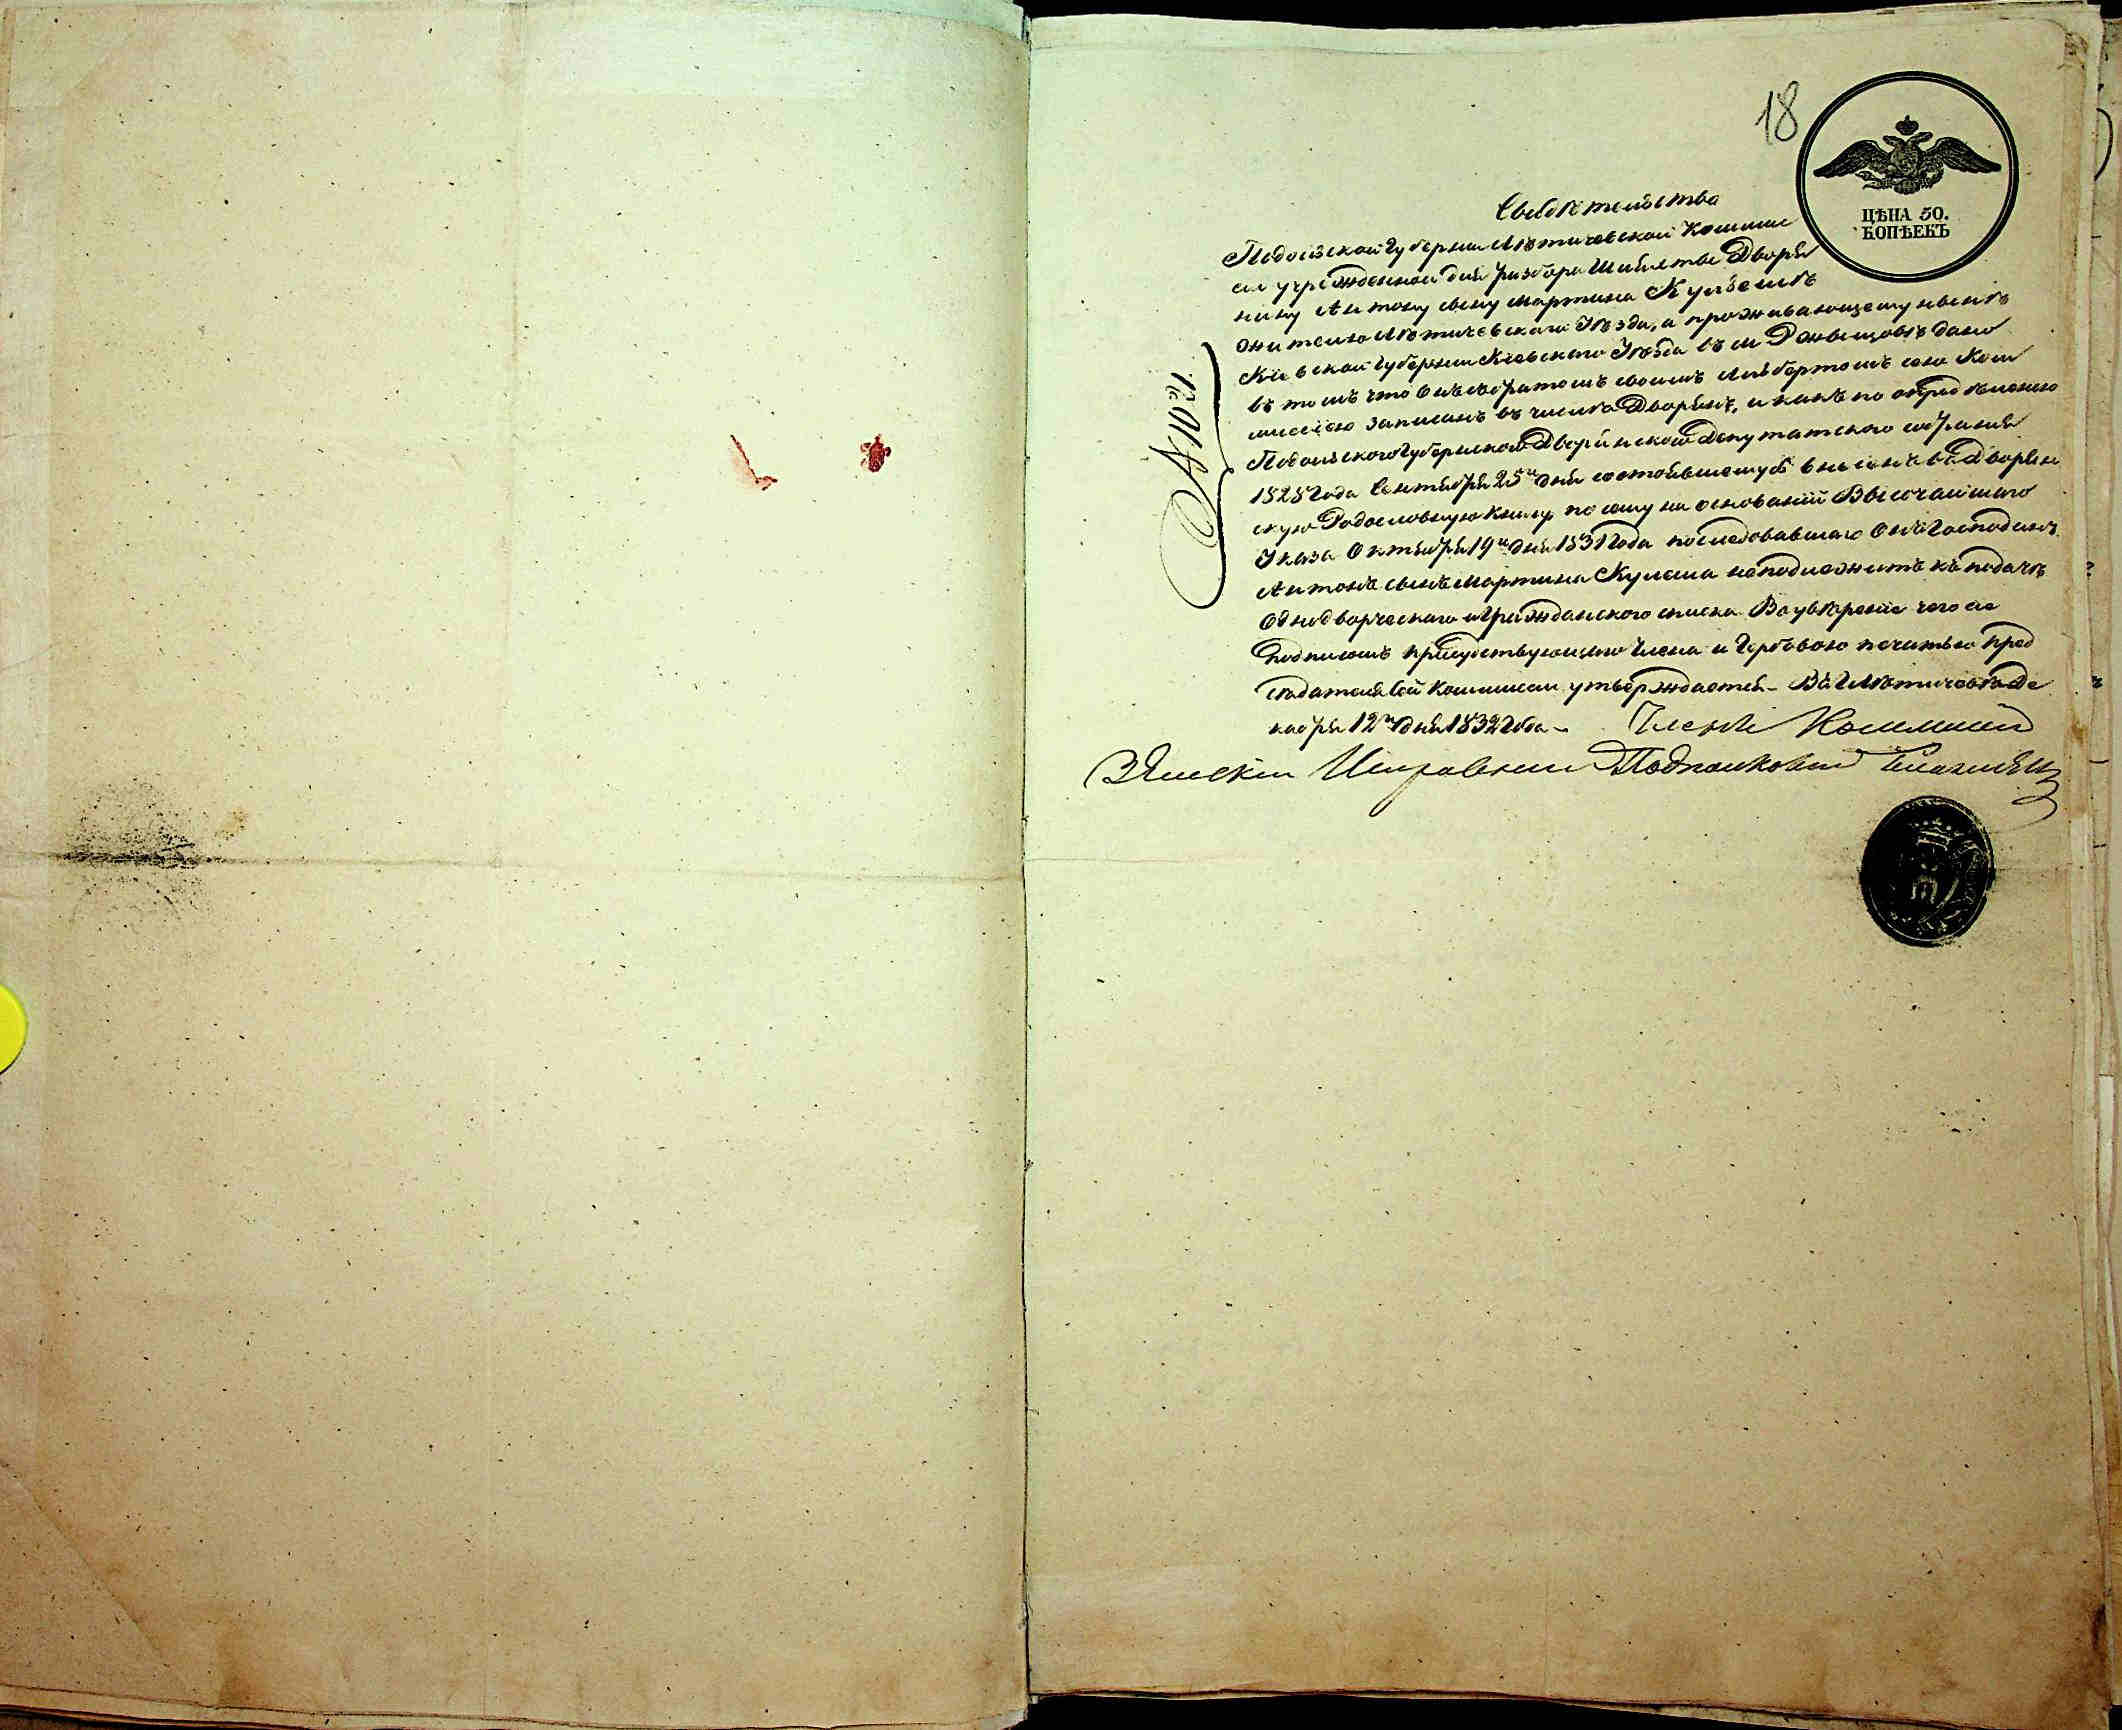 18
ЦѢНА 50.
КОПѢЕКЪ
Свидѣтельство
Подольской Губернии Лѣтичевской Коммис
сии учрежденной для разбора Шляхты Дворя
нину Антону сыну Мартина Кулѣшѣ
жителю Лѣтичевскаго Уѣзда, а проживающему нынѣ
Киевской Губернии Киевскаго Уѣзда въ м
въ томъ что онъ съ братомъ своимъ Албертомъ сею Ком
миссіею записанъ въ число Дворянъ, и какъ по опредѣлению
Подольского Губернского Дворянского Депутатского собрания
1828 Года Сентября 25го дня состоявшемуся внесенъ въ Дворян
скую Родословную книгу, по сему на основаній Высочаишаго
Указа Октября 19го дня 1831 Года последовавшаго онъ Господинъ
Антонъ сынъ Мартина Кулеша неподлежитъ къ подачѣ
Однодворческаго и Гражданского списка. Во увѣрение чего съ
подписомъ присудствующаго Члена и Гербовою печатью пред
сѣдателя сей Коммиссии утверждается. Въ Г. Лѣтичевѣ Де
кабря 12го дня 1832 года
Членъ Коммисии
Земский Исправник Подполковник
№ 1021.